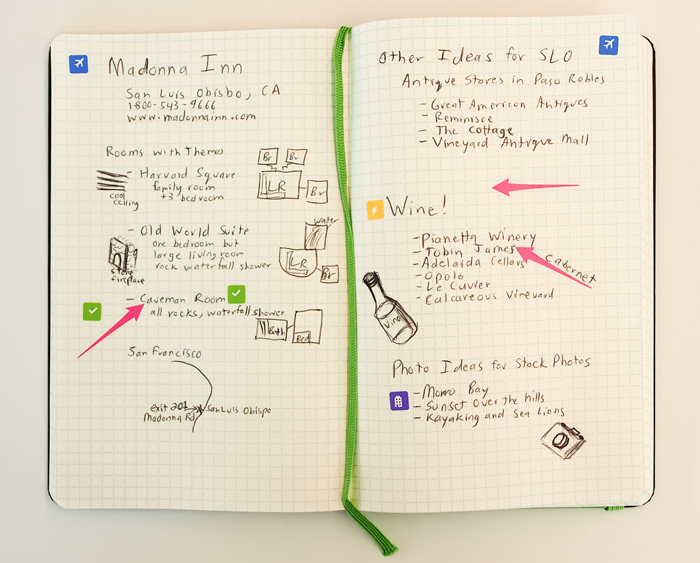 Madonna Inn
San Luis Obisbo, CA
1-800-543-9666
www.madonnainn.com
Rooms with Themes
- Harvard Square
family room
+3 bedroom
cool
ceiling
Br
Br
LR
Br
- Old World Suite
one bedroom but
large living room
rock waterfall shower
stone
fireplace
water
LR
Br
- Caveman Room
all rocks, waterfall shower
Bath
Bed
San Francisco
exit 201
Madonna Rd
San Luis Obispo
Other Ideas for SLO
Antique Stores in Paso Robles
- Great American Antiques
- Reminisce
- The Cottage
- Vineyard Antique Mall
Wine!
- Pianetta Winery
- Tobin James
cabernet
- Adelaida Cellars
- Opolo
- Le Cuvier
- Calcareous Vineyard
Vino
Photo Ideas for Stock Photos
- Morro Bay
- Sunset Over the hills
- Kayaking and Sea Lions